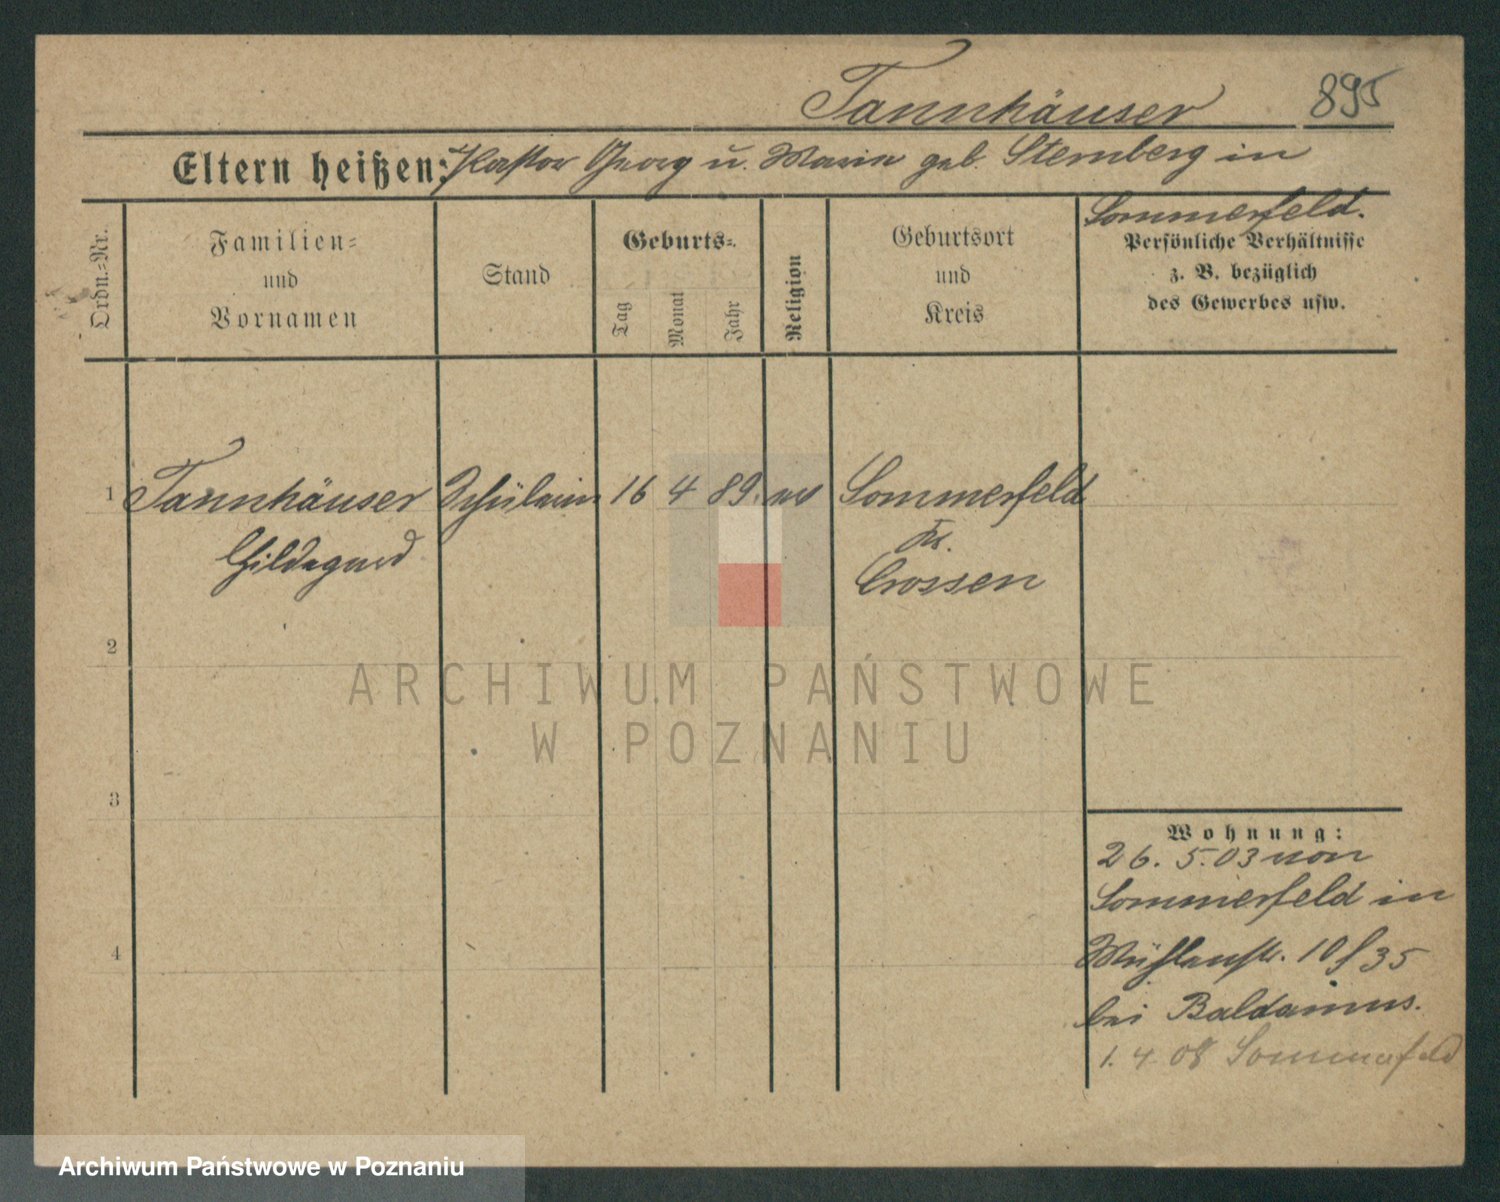 Tannhäuser 895
Eltern heißen: Pastor Georg u. Maria geb. Sternberg in
Sommerfeld.
Ordn.=Nr.
Familien=
und
Vornamen
Stand
Geburts=
Tag
Monat
Jahr
Religion
Geburtsort
und
Kreis
Persönliche Verhältnisse
z. B. bezüglich
des Gewerbes usw.
1 Tannhäuser Schülerin 16 4 89. ev Sommerfeld
Hildegard
Kr.
Crossen
2
3
4
Wohnung:
26. 5. 03 von
Sommerfeld in
Mühlenstr. 10 / 35
bei Baldamus.
1. 4. 08 Sommerfeld
ARCHIWUM PAŃSTWOWE
W POZNANIU
Archiwum Państwowe w Poznaniu